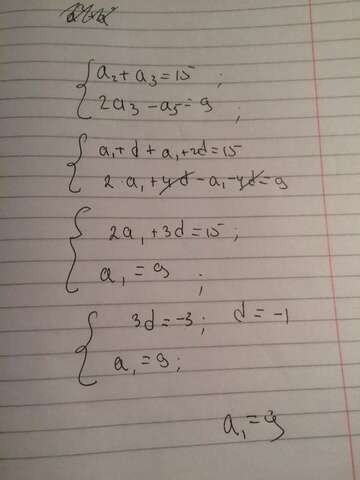 a₂+a₃=15;
2a₃-a₅=9;
a₁+d+a₁+2d=15
2·a₁+4d-a₁-4d=9
2a₁+3d=15;
a₁=9;
3d=-3; d=-1
a₁=9;
a₁=9